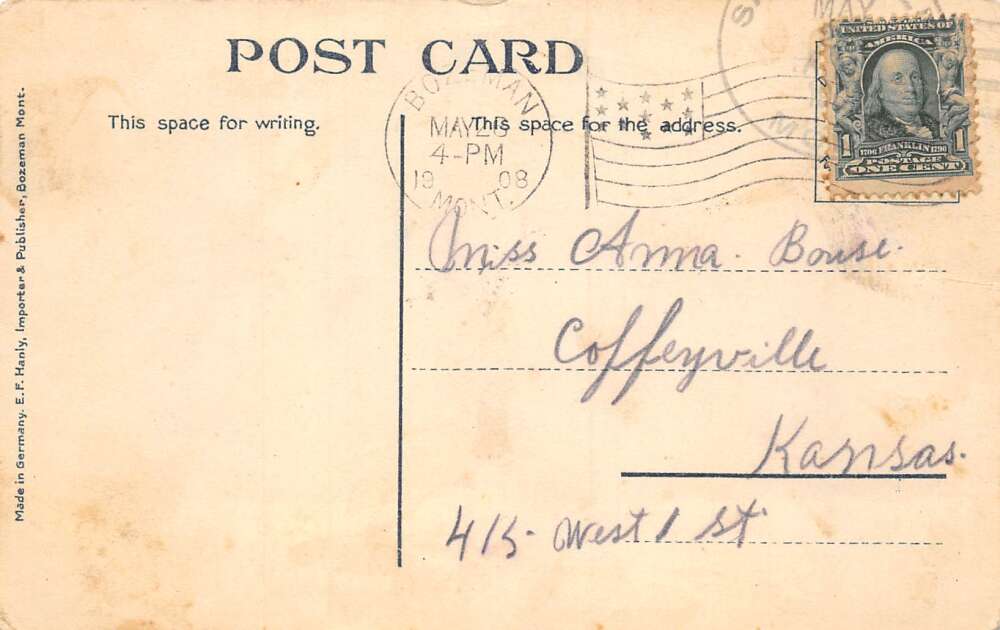 POST CARD
This space for writing.
This space for the address.
BOZEMAN
MAY 26
4-PM
19 08
MONT.
UNITED STATES OF
AMERICA
1 1706 FRANKLIN 1790 1
POSTAGE
ONE CENT
Miss Anna. Bouse.
Coffeyville
Kansas.
415 West 1 St
Made in Germany. E. F. Hanly, Importer & Publisher, Bozeman Mont.